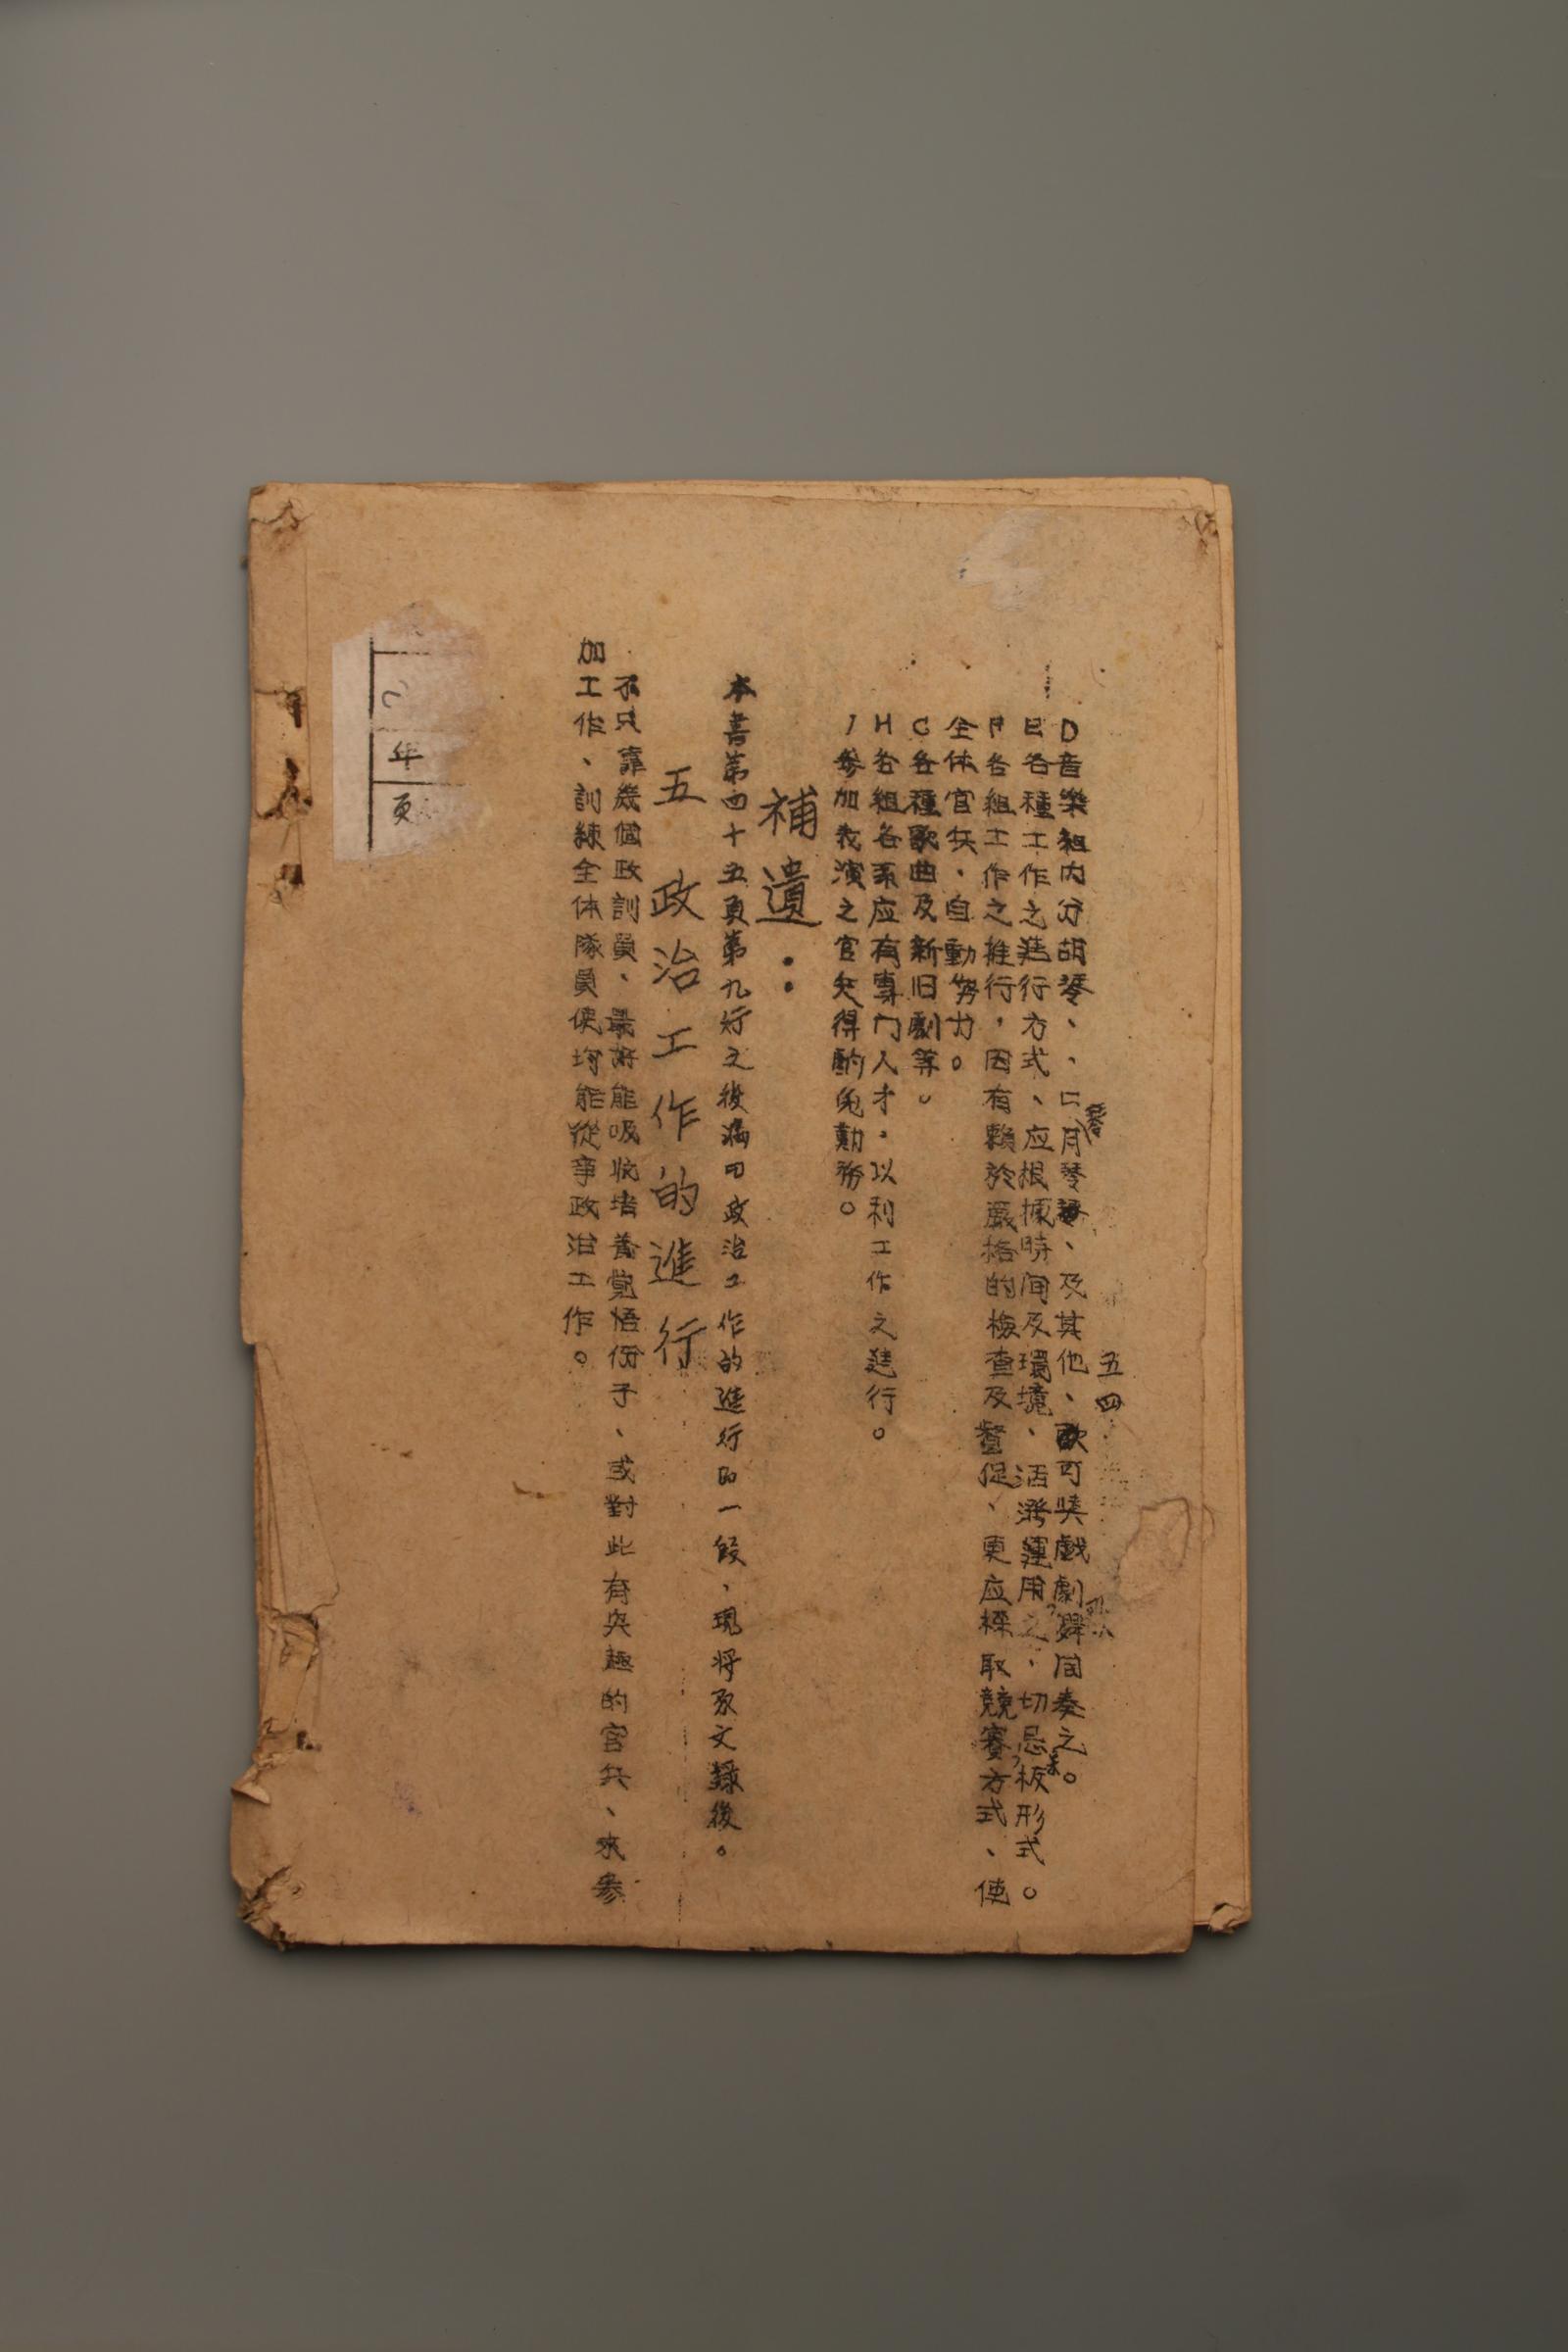 五四
D音樂組內分胡琴、、口月琴、及其他、歌可與戲劇舞同奏之。
E各種工作之進行方式、应根據時间及環境、活潑運用之、切忌呆板形式。
F各組工作之推行，因有賴於嚴格的檢查及督促、更应採取競賽方式、使
全体官兵，自動努力。
G各種歌曲及新旧劇等。
H各組各系应有專门人才，以利工作之進行。
I參加表演之官兵得酌免勤務。
補遺：
本書第四十五頁第九行之後漏印政治工作的進行的一段，現將原文錄後。
五 政治工作的進行
不只靠幾個政訓員、最好能吸收培養覺悟份子、或對此有興趣的官兵、來參
加工作、訓練全体隊員使均能從事政治工作。
年
頁